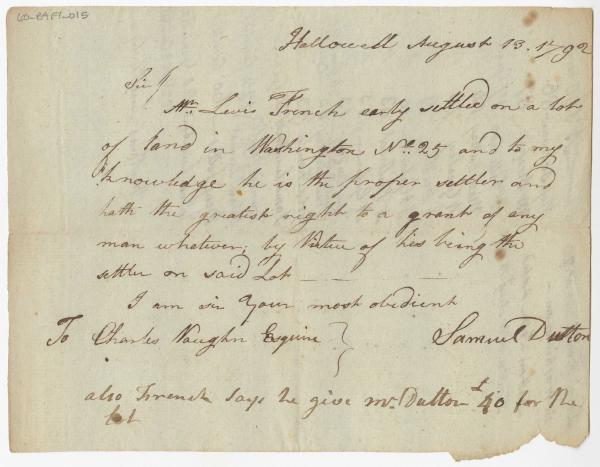 60-PAF1-015
Hallowell August 13. 1792
Sir//
Mr. Lewis French early settled on a lot
of land in Washington No. 25 and to my
knowledge he is the proper settler and
hath the greatest right to a grant of any
man whatever; by Virtue of his being the
settler on said Lot — —
I am sir Your most obedient
To Charles Vaughn Esquire } Samuel Dutton
also French says he give mr. Dutton £40 for the
lot